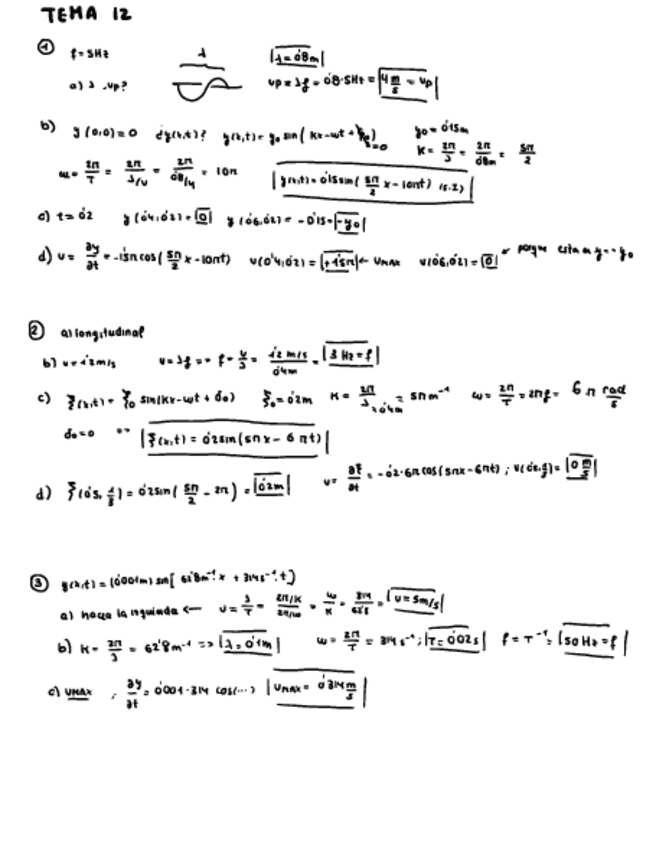 TEMA 12
① f = 5Hz λ |λ = 0'8m|
a) λ , vp? vp = λf = 0'8·5Hz = |4 m/s = vp|
b) y(0,0)=0 ¿y(x,t)? y(x,t) = y₀ sin(kx-ωt+φ₀) =0 y₀ = 0'15m k = 2π/λ = 2π/0'8m = 5π/2
ω = 2π/T = 2π/λ/v = 2π/0'8/4 = 10π |y(x,t) = 0'15 sin(5π/2 x - 10πt) (S.I)|
c) t = 0'2 y(0'4,0'2) = |0| y(0'6,0'2) = -0'15 = |-y₀|
d) v = ∂y/∂t = -1'5π cos(5π/2 x - 10πt) v(0'4,0'2) = |+1'5π| ← vMAX v(0'6,0'2) = |0| ← porque esta en y = -y₀
② a) longitudinal
b) v = 1'2m/s v = λf => f = v/λ = 1'2 m/s / 0'4m = |3 Hz = f|
c) ξ(x,t) = ξ₀ sin(kx-ωt+δ₀) ξ₀ = 0'2m k = 2π/λ =0'4m = 5π m⁻¹ ω = 2π/T = 2πf = 6π rad/s
δ₀=0 => |ξ(x,t) = 0'2 sin(5πx - 6πt)|
d) ξ(0'5, 1/3) = 0'2 sin(5π/2 - 2π) = |0'2m| v = ∂ξ/∂t = -0'2·6π cos(5πx-6πt) ; v(0'5,1/3) = |0 m/s|
③ y(x,t) = (0'001m) sin[62'8m⁻¹·x + 314s⁻¹·t]
a) hacia la izquierda ← v = λ/T = 2π/k / 2π/ω = ω/k = 314/62'8 = |v = 5m/s|
b) k = 2π/λ = 62'8m⁻¹ => |λ = 0'1m| ω = 2π/T = 314 s⁻¹ ; |T = 0'02s| f = T⁻¹ = |50 Hz = f|
c) vMAX , ∂y/∂t = 0'001·314 cos(...) |vMAX = 0'314 m/s|